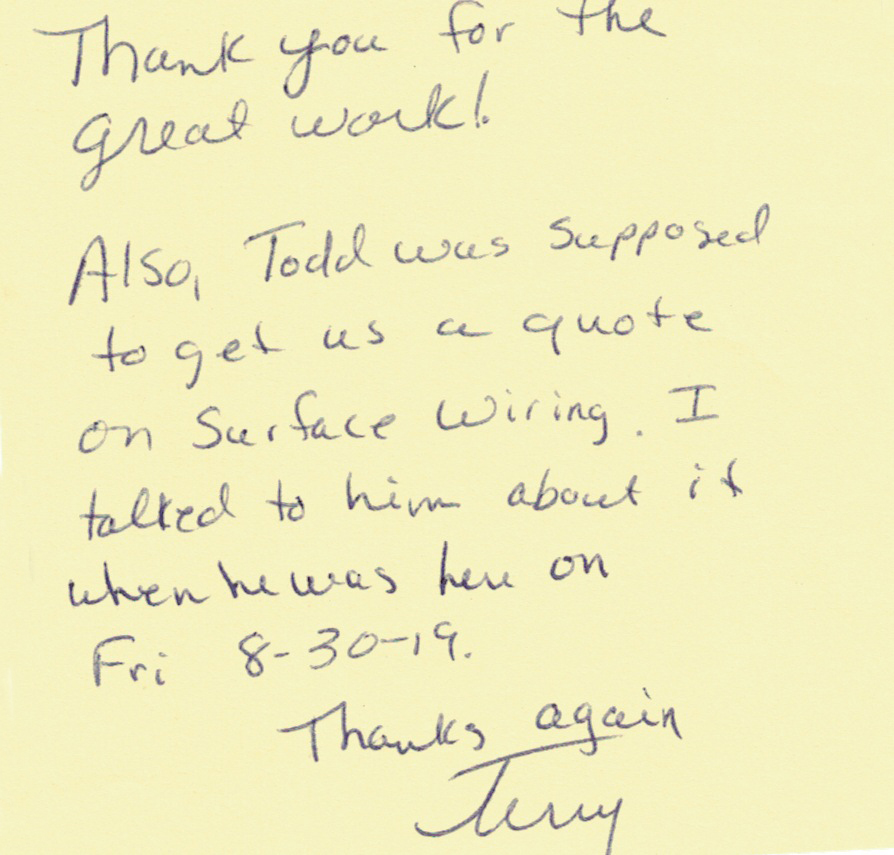 Thank you for the
great work!
Also, Todd was supposed
to get us a quote
on surface wiring. I
talked to him about it
when he was here on
Fri 8-30-19.
Thanks again
Jerry